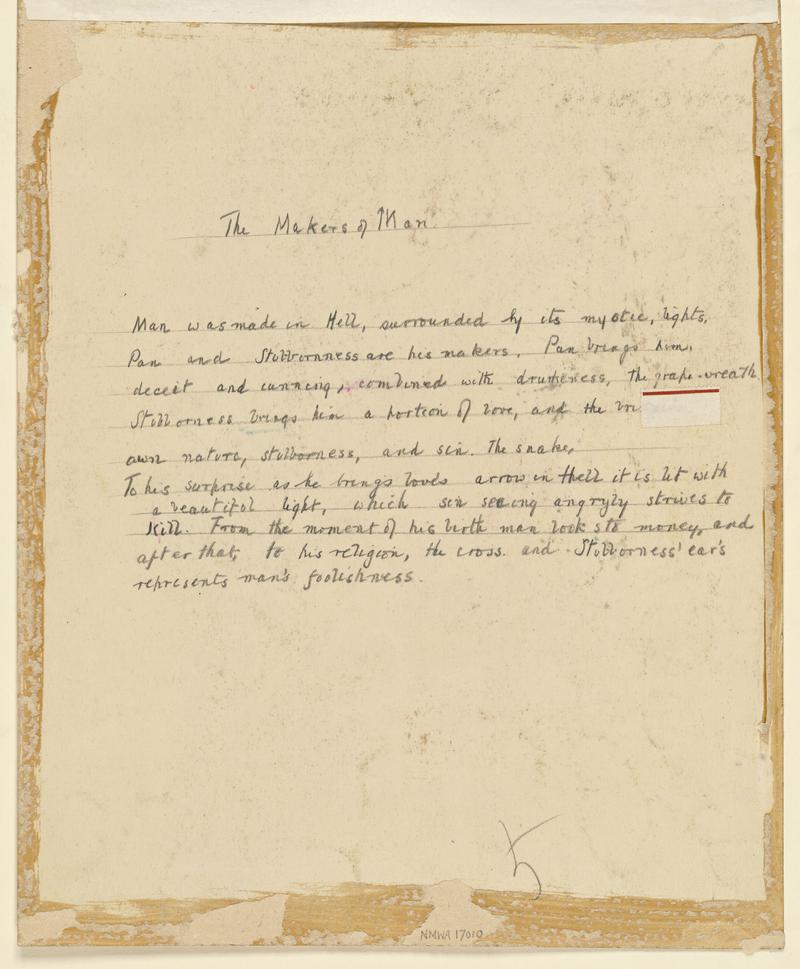 The Makers of Man.
Man was made in Hell, surrounded by its mystic, lights,
Pan and Stubbornness are his makers. Pan brings him,
deceit and cunning, combined with drunkeness, the grape-wreath
Stubborness brings him a portion of love, and the
own nature, stubborness, and sin. The snake,
To his surprise as he brings love's arrow in Hell it is lit with
a beautiful light, which sin seeing angryly strives to
Kill. From the moment of his birth man looks to money, and
after that, to his religion, the cross. and Stubborness' ear's
represents man's foolishness.
5
NMWA 17010